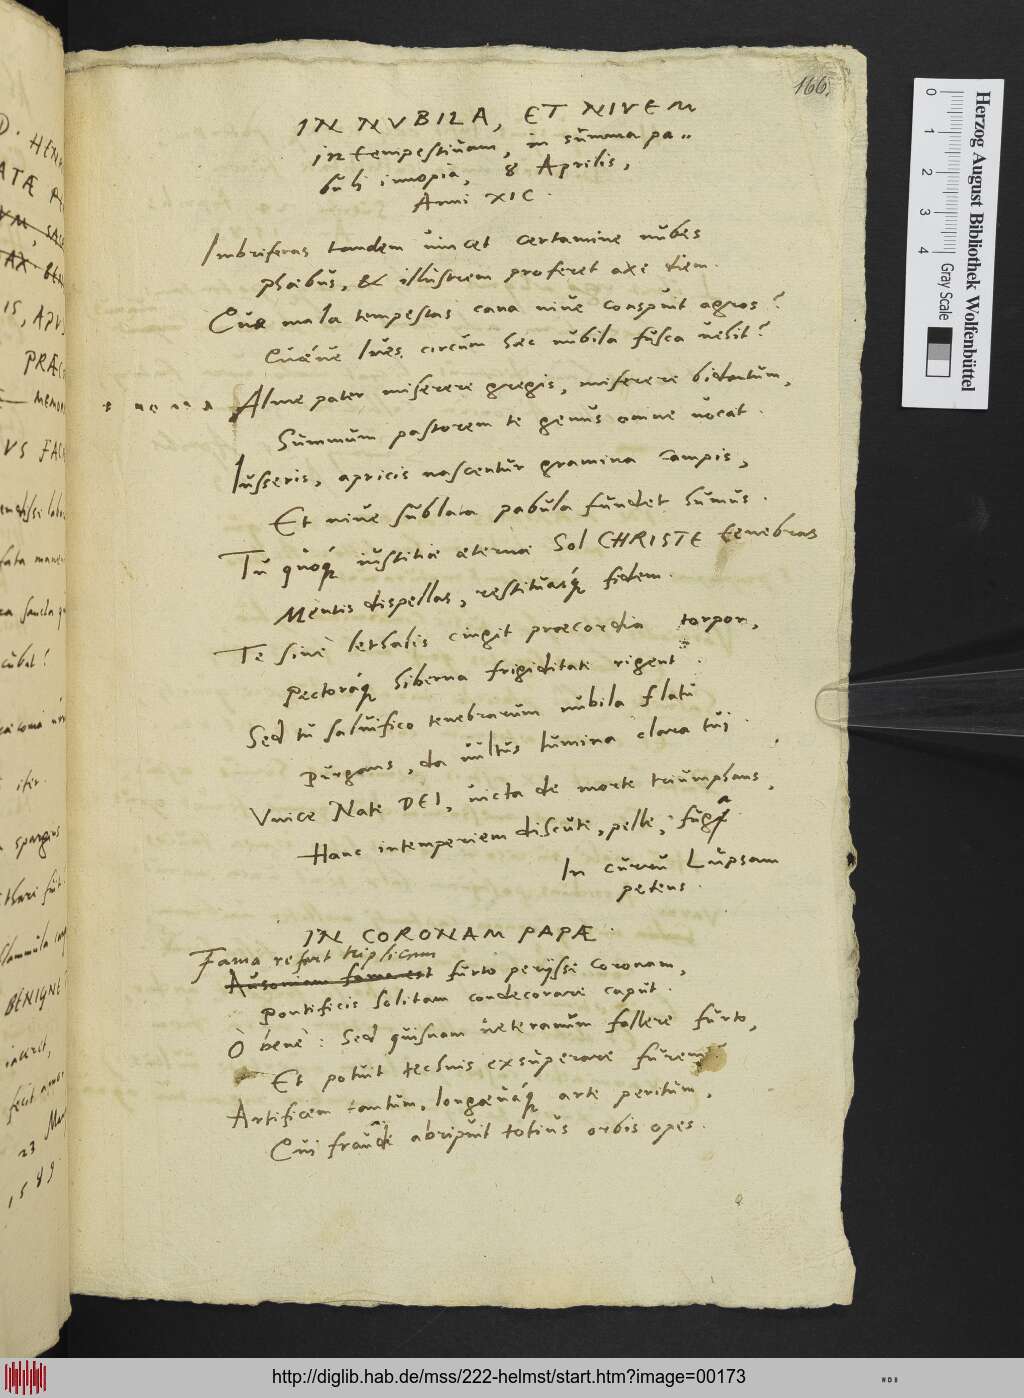 166.
IN NVBILA, ET NIVEM
intempestiuam, in summa pa=
buli inopia, 8 Aprilis,
Anni XIC.
Imbriferas tandem uincet certamine nubes
phœbus, & illustrem proferet axe diem.
Cuæ mala tempestas cana niue conspuit agros?
Cuæue lues circum hæc nubila fusca uehit?
Alme pater miserere gregis, miserere bidentum,
Summum pastorem te genus omne uocat.
Iusseris, apricis nascentur gramina campis,
Et niue sublata pabula fundet humus.
Tu quoq́ue iustitiæ æternæ Sol CHRISTE tenebras
Mentis dispellas, restituasq́ue fidem.
Te sine lethalis cingit præcordia torpor,
Pectoraq́ue hiberna frigiditate rigent.
Sed tu saluifico tenebrarum nubila flatu
Purgans, da uultus lumina clara tui.
Vnice Nate DEI, uicta de morte triumphans,
Hanc intemperiem discute, pelle, fuga
In curru Lupsam
petens.
IN CORONAM PAPÆ.
Fama refert triplicem
Ausoniam fama est furto perijsse coronam,
Pontificis solitam condecorare caput.
O bene: Sed quisnam ueteranum fallere furto,
Et potuit technis exsuperare furem?
Artificem tantum, longæuaq́ue arte peritum,
Cui fraude abripuit totius orbis opes.
PRÆC
VS FAC
cubat!
iter.
BENIGNE
23 Mar
1589.
Herzog August Bibliothek Wolfenbüttel
0 1 2 3 4
Gray Scale
http://diglib.hab.de/mss/222-helmst/start.htm?image=00173